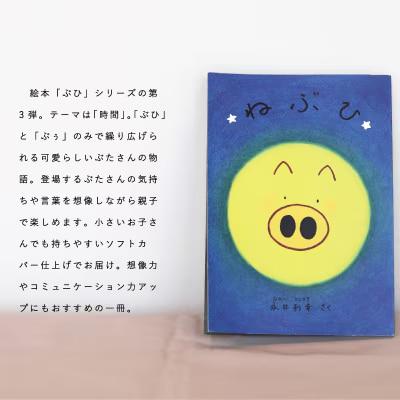 絵本「ぷひ」シリーズの第
3弾。テーマは「時間」。「ぷひ」
と「ぷぅ」のみで繰り広げら
れる可愛らしいぶたさんの物
語。登場するぶたさんの気持
ちや言葉を想像しながら親子
で楽しめます。小さいお子さ
んでも持ちやすいソフトカ
バー仕上げでお届け。想像力
やコミュニケーション力アッ
プにもおすすめの一冊。
ねぷひ
さく